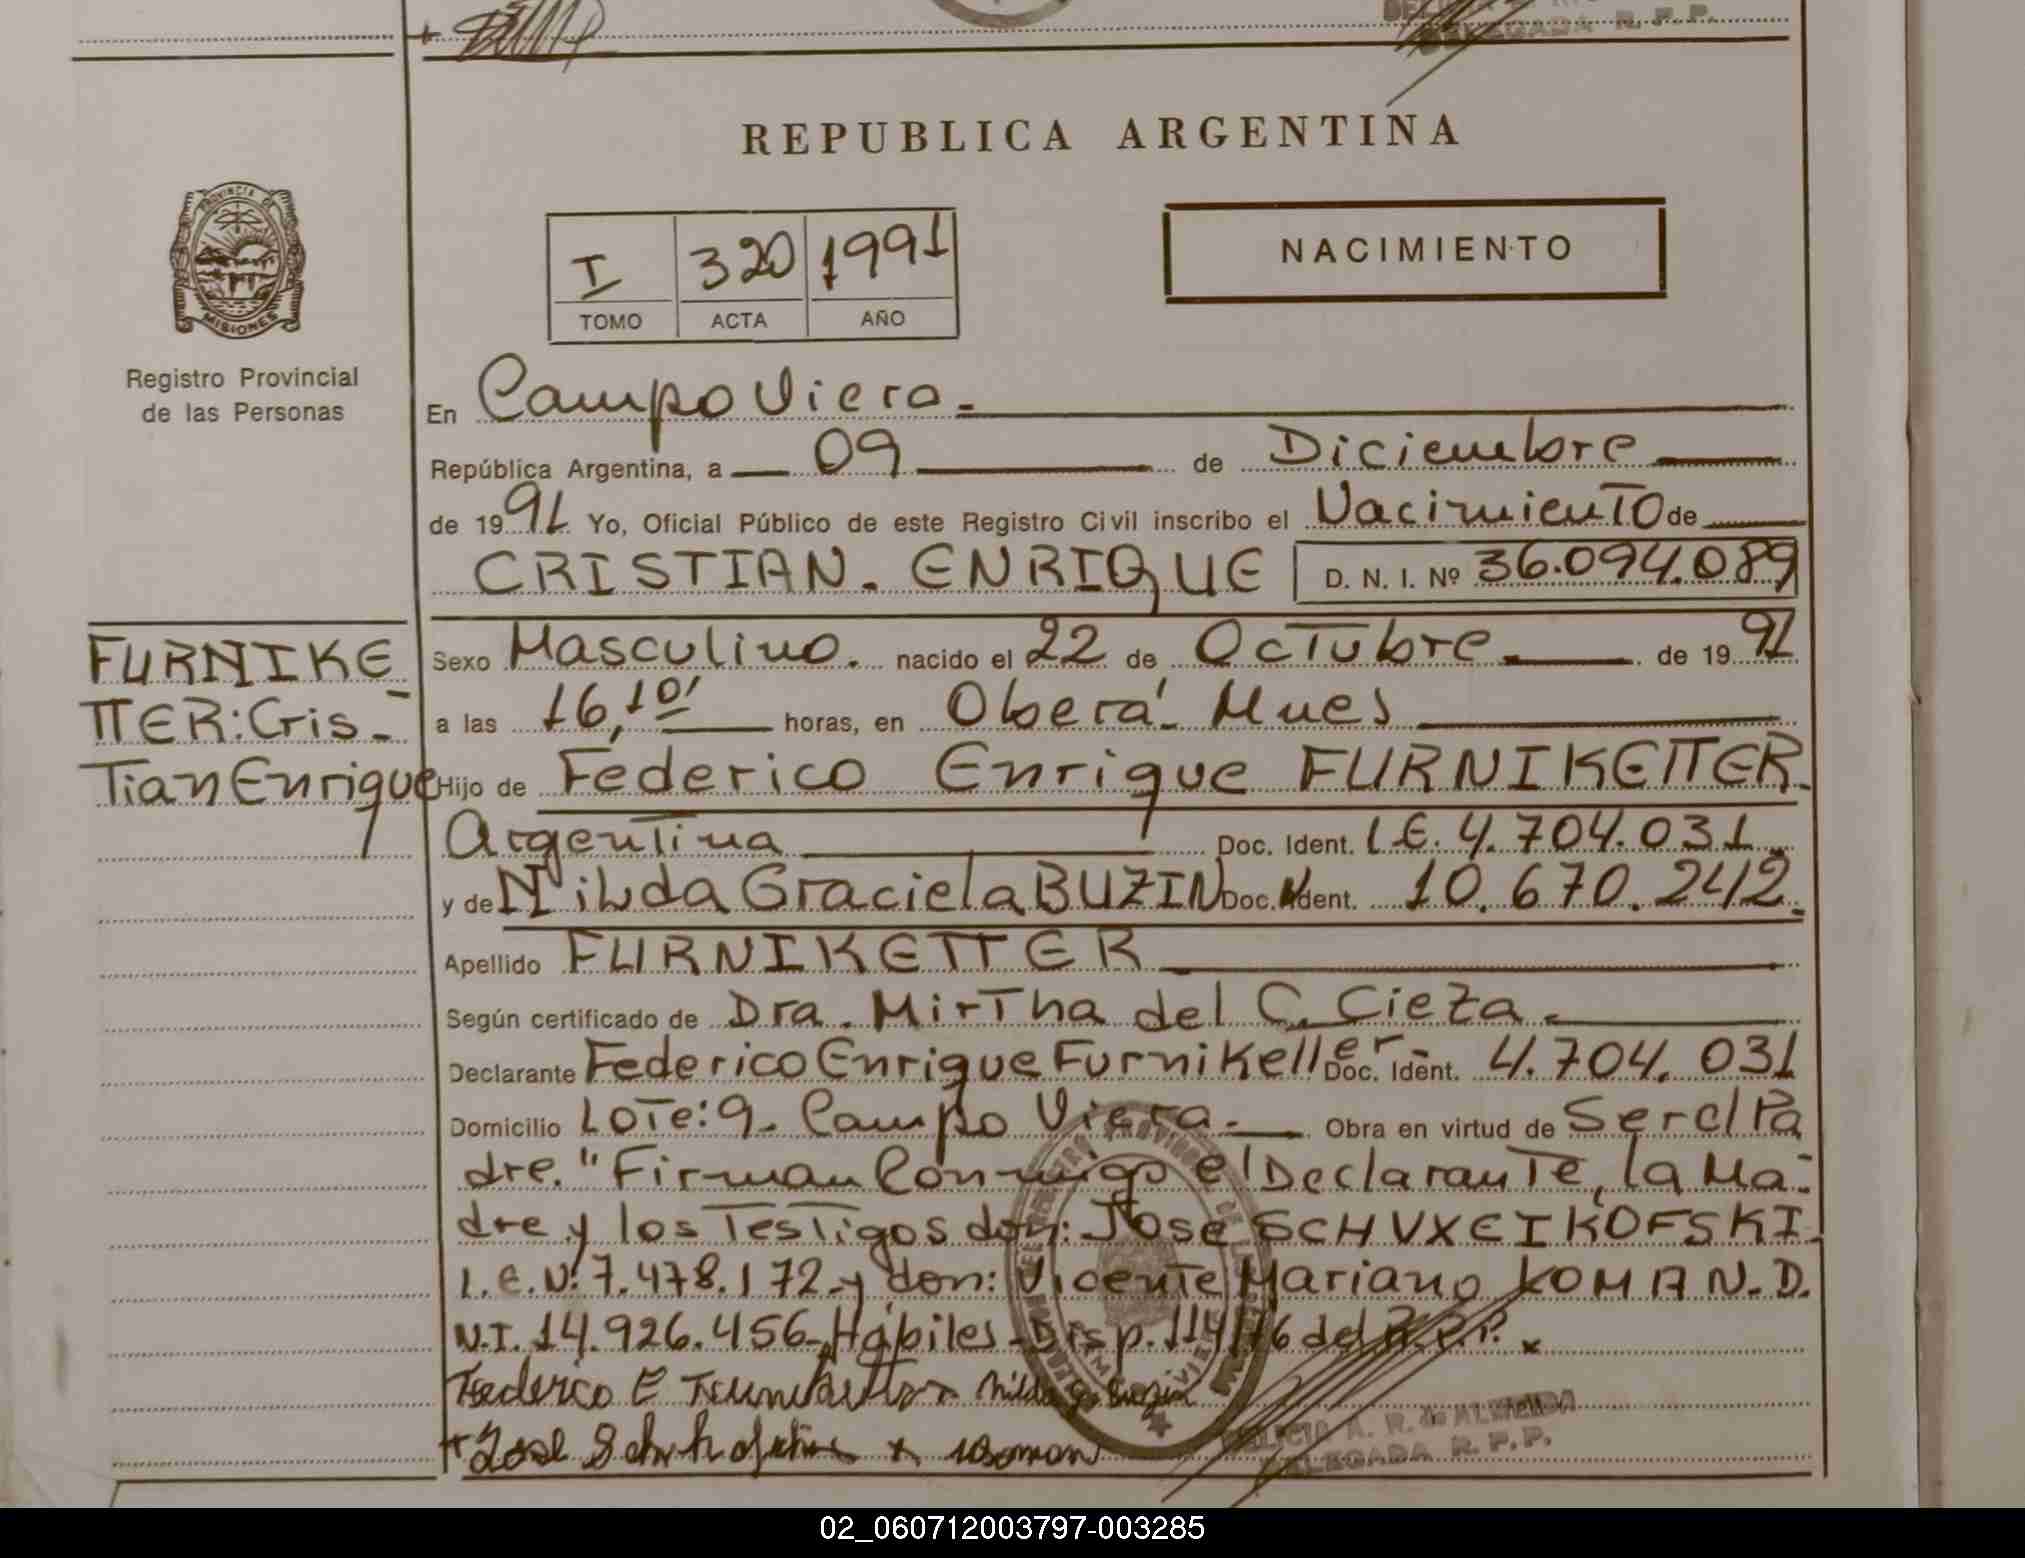 DELEGADA R. P. P.
REPUBLICA ARGENTINA
PROVINCIA DE
MISIONES
I 320 1991
TOMO ACTA AÑO
NACIMIENTO
Registro Provincial
de las Personas
En Campo Viera.-
República Argentina, a 09 de Diciembre
de 1991 Yo, Oficial Público de este Registro Civil inscribo el Nacimiento de
CRISTIAN. ENRIQUE D. N. I. Nº 36.094.089
FURNIKE
TTER: Cris-
Tian Enrique
Sexo Masculino. nacido el 22 de Octubre. de 1991
a las 16,10' horas, en Oberá.- Mnes
Hijo de Federico Enrique FURNIKETTER.
Argentina Doc. Ident. L.E. 4.704.031.
y de Nilda Graciela BUZIN Doc. Ident. 10.670.242.
Apellido FURNIKETTER
Según certificado de Dra. Mirtha del C. Cieza.
Declarante Federico Enrique Furniketter Doc. Ident. 4.704.031
Domicilio Lote: 9. Campo Viera.- Obra en virtud de Ser el Pa
dre. "Firman Conmigo el Declarante, la Ma-
dre y los Testigos don: Jose SCHVXEIKOFSKI
L.E.N: 7.478.172 y don: Vicente Mariano KOMAN. D.
N.I. 14.926.456 Hábiles - Disp. 114/76 del R.P.P. x
Federico E Nilda G. Buzin
José
DELICIA A. R. de ALMEIDA
DELEGADA R. P. P.
02_060712003797-003285